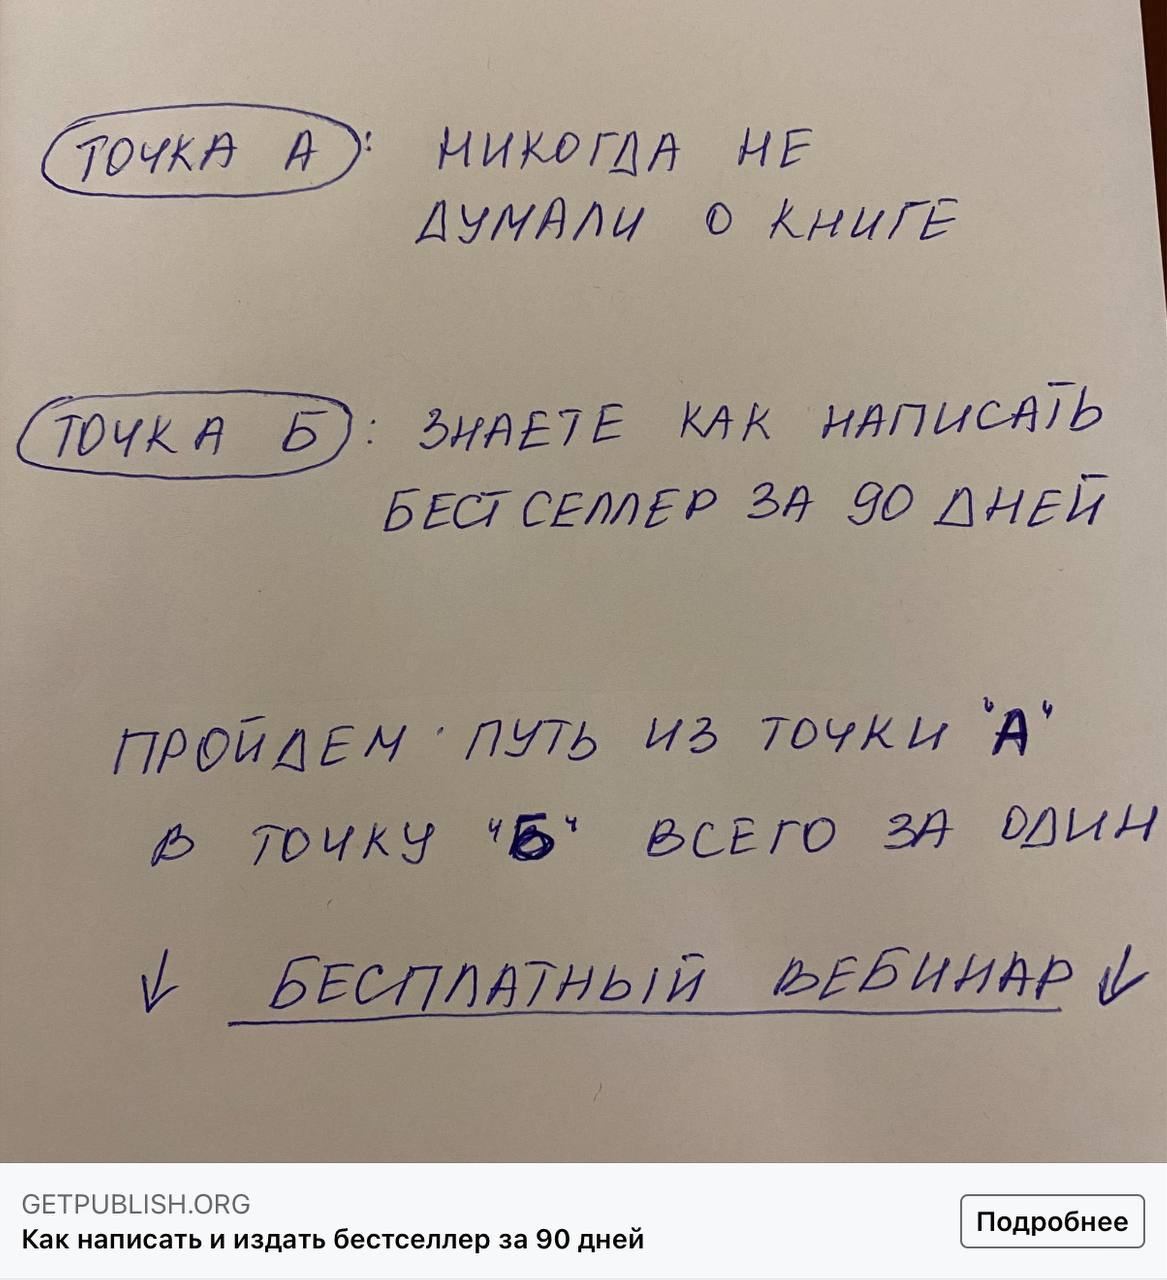 ТОЧКА А: НИКОГДА НЕ
ДУМАЛИ О КНИГЕ
ТОЧКА Б: ЗНАЕТЕ КАК НАПИСАТЬ
БЕСТСЕЛЛЕР ЗА 90 ДНЕЙ
ПРОЙДЕМ ПУТЬ ИЗ ТОЧКИ "А"
В ТОЧКУ "Б" ВСЕГО ЗА ОДИН
↓ БЕСПЛАТНЫЙ ВЕБИНАР ↓
GETPUBLISH.ORG
Как написать и издать бестселлер за 90 дней
Подробнее